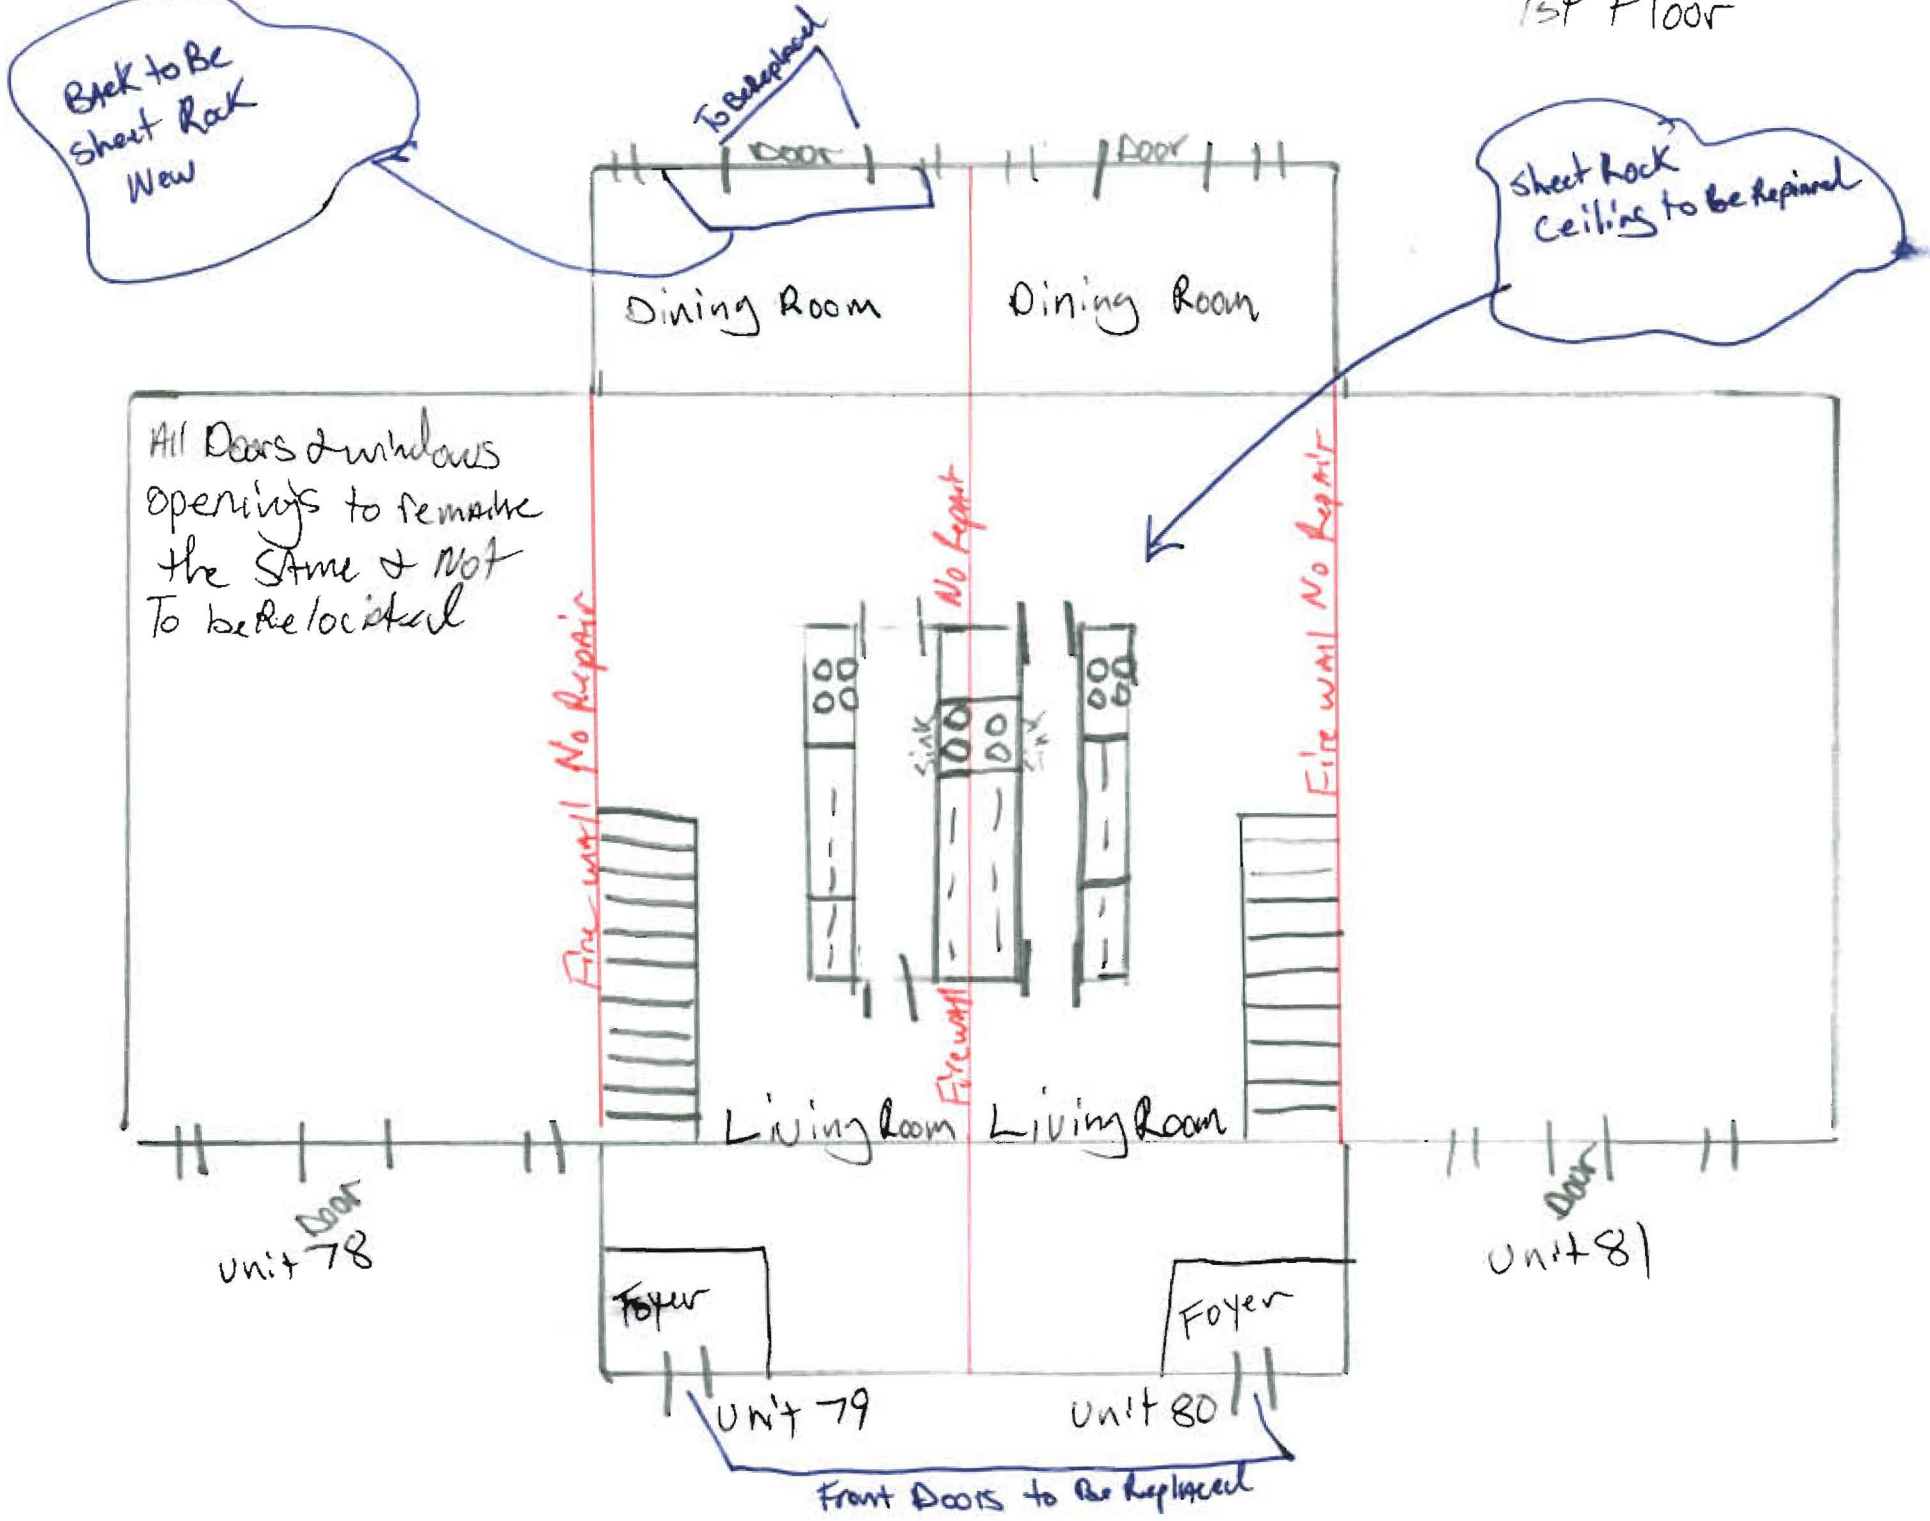 1st Floor
Back to Be
Sheet Rock
New
To Be Replaced
Door
Door
Sheet Rock
Ceiling to be Repaired
Dining Room
Dining Room
All Doors & windows
opening's to remaine
the Same & Not
To be Relocated
Fire wall No Repair
No Repair
Firewall
Fire wall No Repair
Sink
Sink
Living Room
Living Room
Door
Unit 78
Door
Unit 81
Foyer
Foyer
Unit 79
Unit 80
Front Doors to Be Replaced